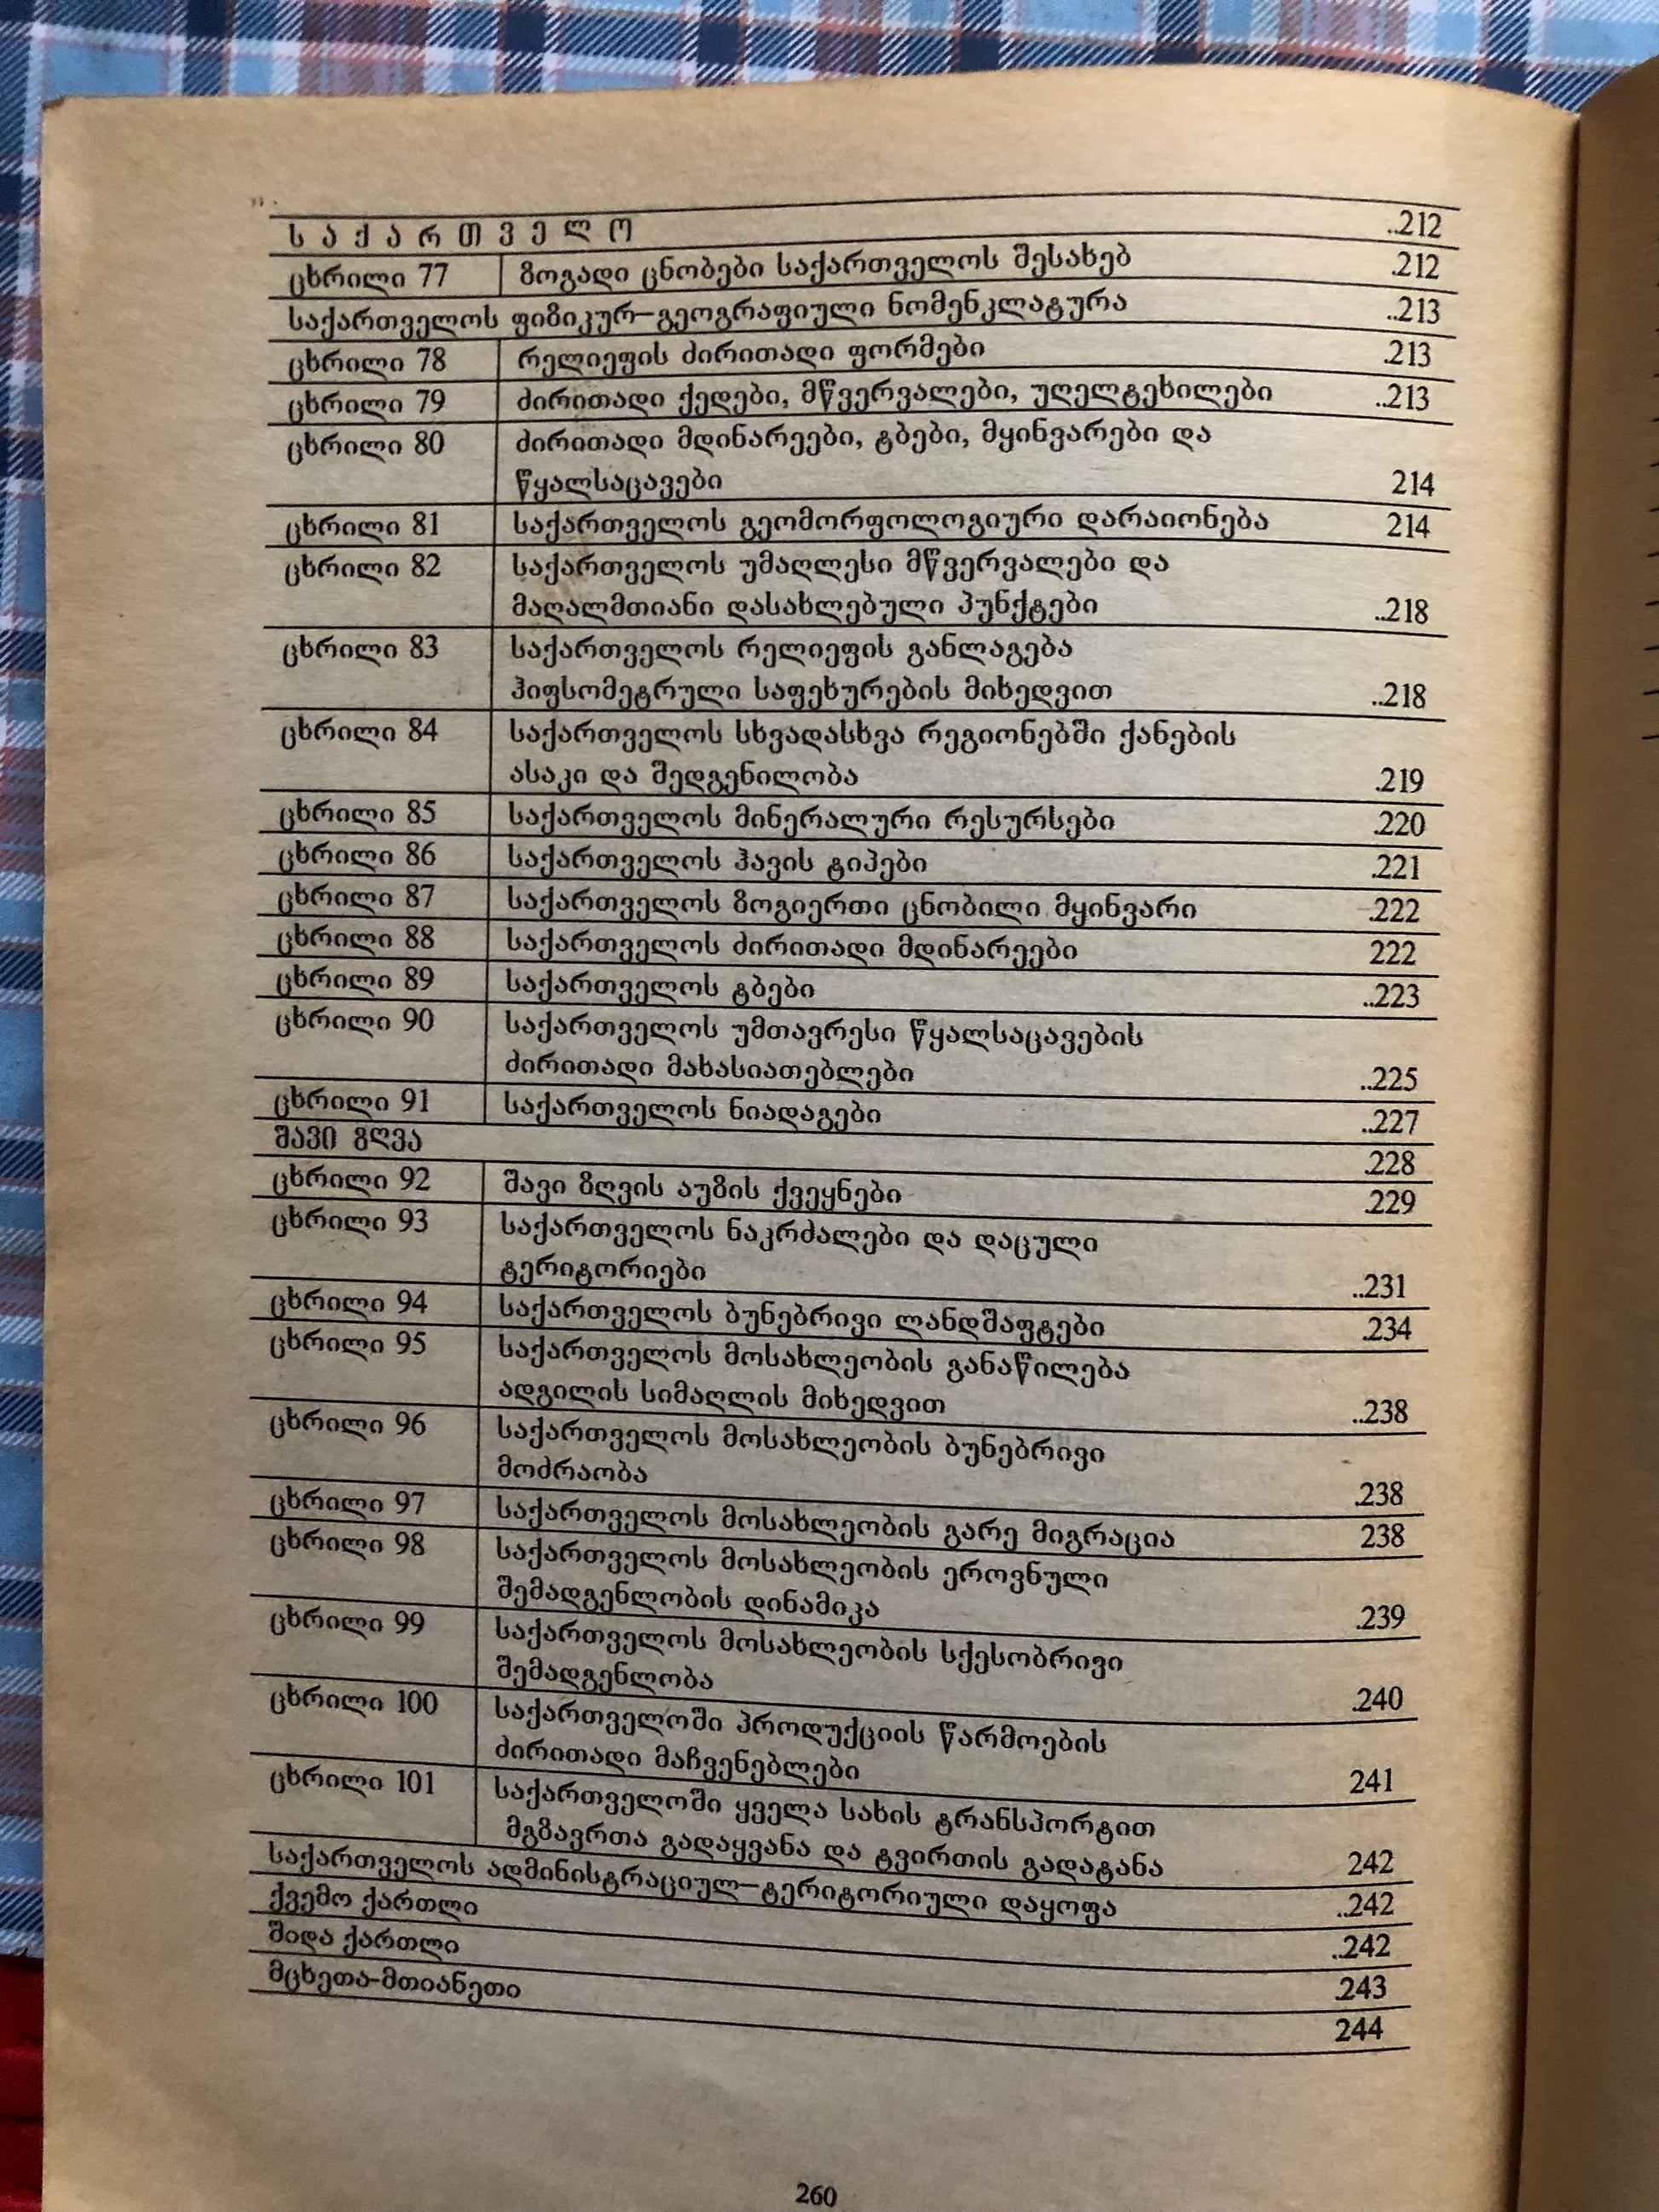 საქართველო ..212
ცხრილი 77 ზოგადი ცნობები საქართველოს შესახებ .212
საქართველოს ფიზიკურ–გეოგრაფიული ნომენკლატურა ..213
ცხრილი 78 რელიეფის ძირითადი ფორმები .213
ცხრილი 79 ძირითადი ქედები, მწვერვალები, უღელტეხილები ..213
ცხრილი 80 ძირითადი მდინარეები, ტბები, მყინვარები და
წყალსაცავები 214
ცხრილი 81 საქართველოს გეომორფოლოგიური დარაიონება 214
ცხრილი 82 საქართველოს უმაღლესი მწვერვალები და
მაღალმთიანი დასახლებული პუნქტები ..218
ცხრილი 83 საქართველოს რელიეფის განლაგება
ჰიფსომეტრული საფეხურების მიხედვით ..218
ცხრილი 84 საქართველოს სხვადასხვა რეგიონებში ქანების
ასაკი და შედგენილობა .219
ცხრილი 85 საქართველოს მინერალური რესურსები .220
ცხრილი 86 საქართველოს ჰავის ტიპები .221
ცხრილი 87 საქართველოს ზოგიერთი ცნობილი მყინვარი .222
ცხრილი 88 საქართველოს ძირითადი მდინარეები 222
ცხრილი 89 საქართველოს ტბები ..223
ცხრილი 90 საქართველოს უმთავრესი წყალსაცავების
ძირითადი მახასიათებლები ..225
ცხრილი 91 საქართველოს ნიადაგები ..227
შავი ზღვა .228
ცხრილი 92 შავი ზღვის აუზის ქვეყნები .229
ცხრილი 93 საქართველოს ნაკრძალები და დაცული
ტერიტორიები ..231
ცხრილი 94 საქართველოს ბუნებრივი ლანდშაფტები .234
ცხრილი 95 საქართველოს მოსახლეობის განაწილება
ადგილის სიმაღლის მიხედვით ..238
ცხრილი 96 საქართველოს მოსახლეობის ბუნებრივი
მოძრაობა .238
ცხრილი 97 საქართველოს მოსახლეობის გარე მიგრაცია 238
ცხრილი 98 საქართველოს მოსახლეობის ეროვნული
შემადგენლობის დინამიკა .239
ცხრილი 99 საქართველოს მოსახლეობის სქესობრივი
შემადგენლობა .240
ცხრილი 100 საქართველოში პროდუქციის წარმოების
ძირითადი მაჩვენებლები 241
ცხრილი 101 საქართველოში ყველა სახის ტრანსპორტით
მგზავრთა გადაყვანა და ტვირთის გადატანა 242
საქართველოს ადმინისტრაციულ–ტერიტორიული დაყოფა ..242
ქვემო ქართლი ..242
შიდა ქართლი .243
მცხეთა-მთიანეთი 244
260